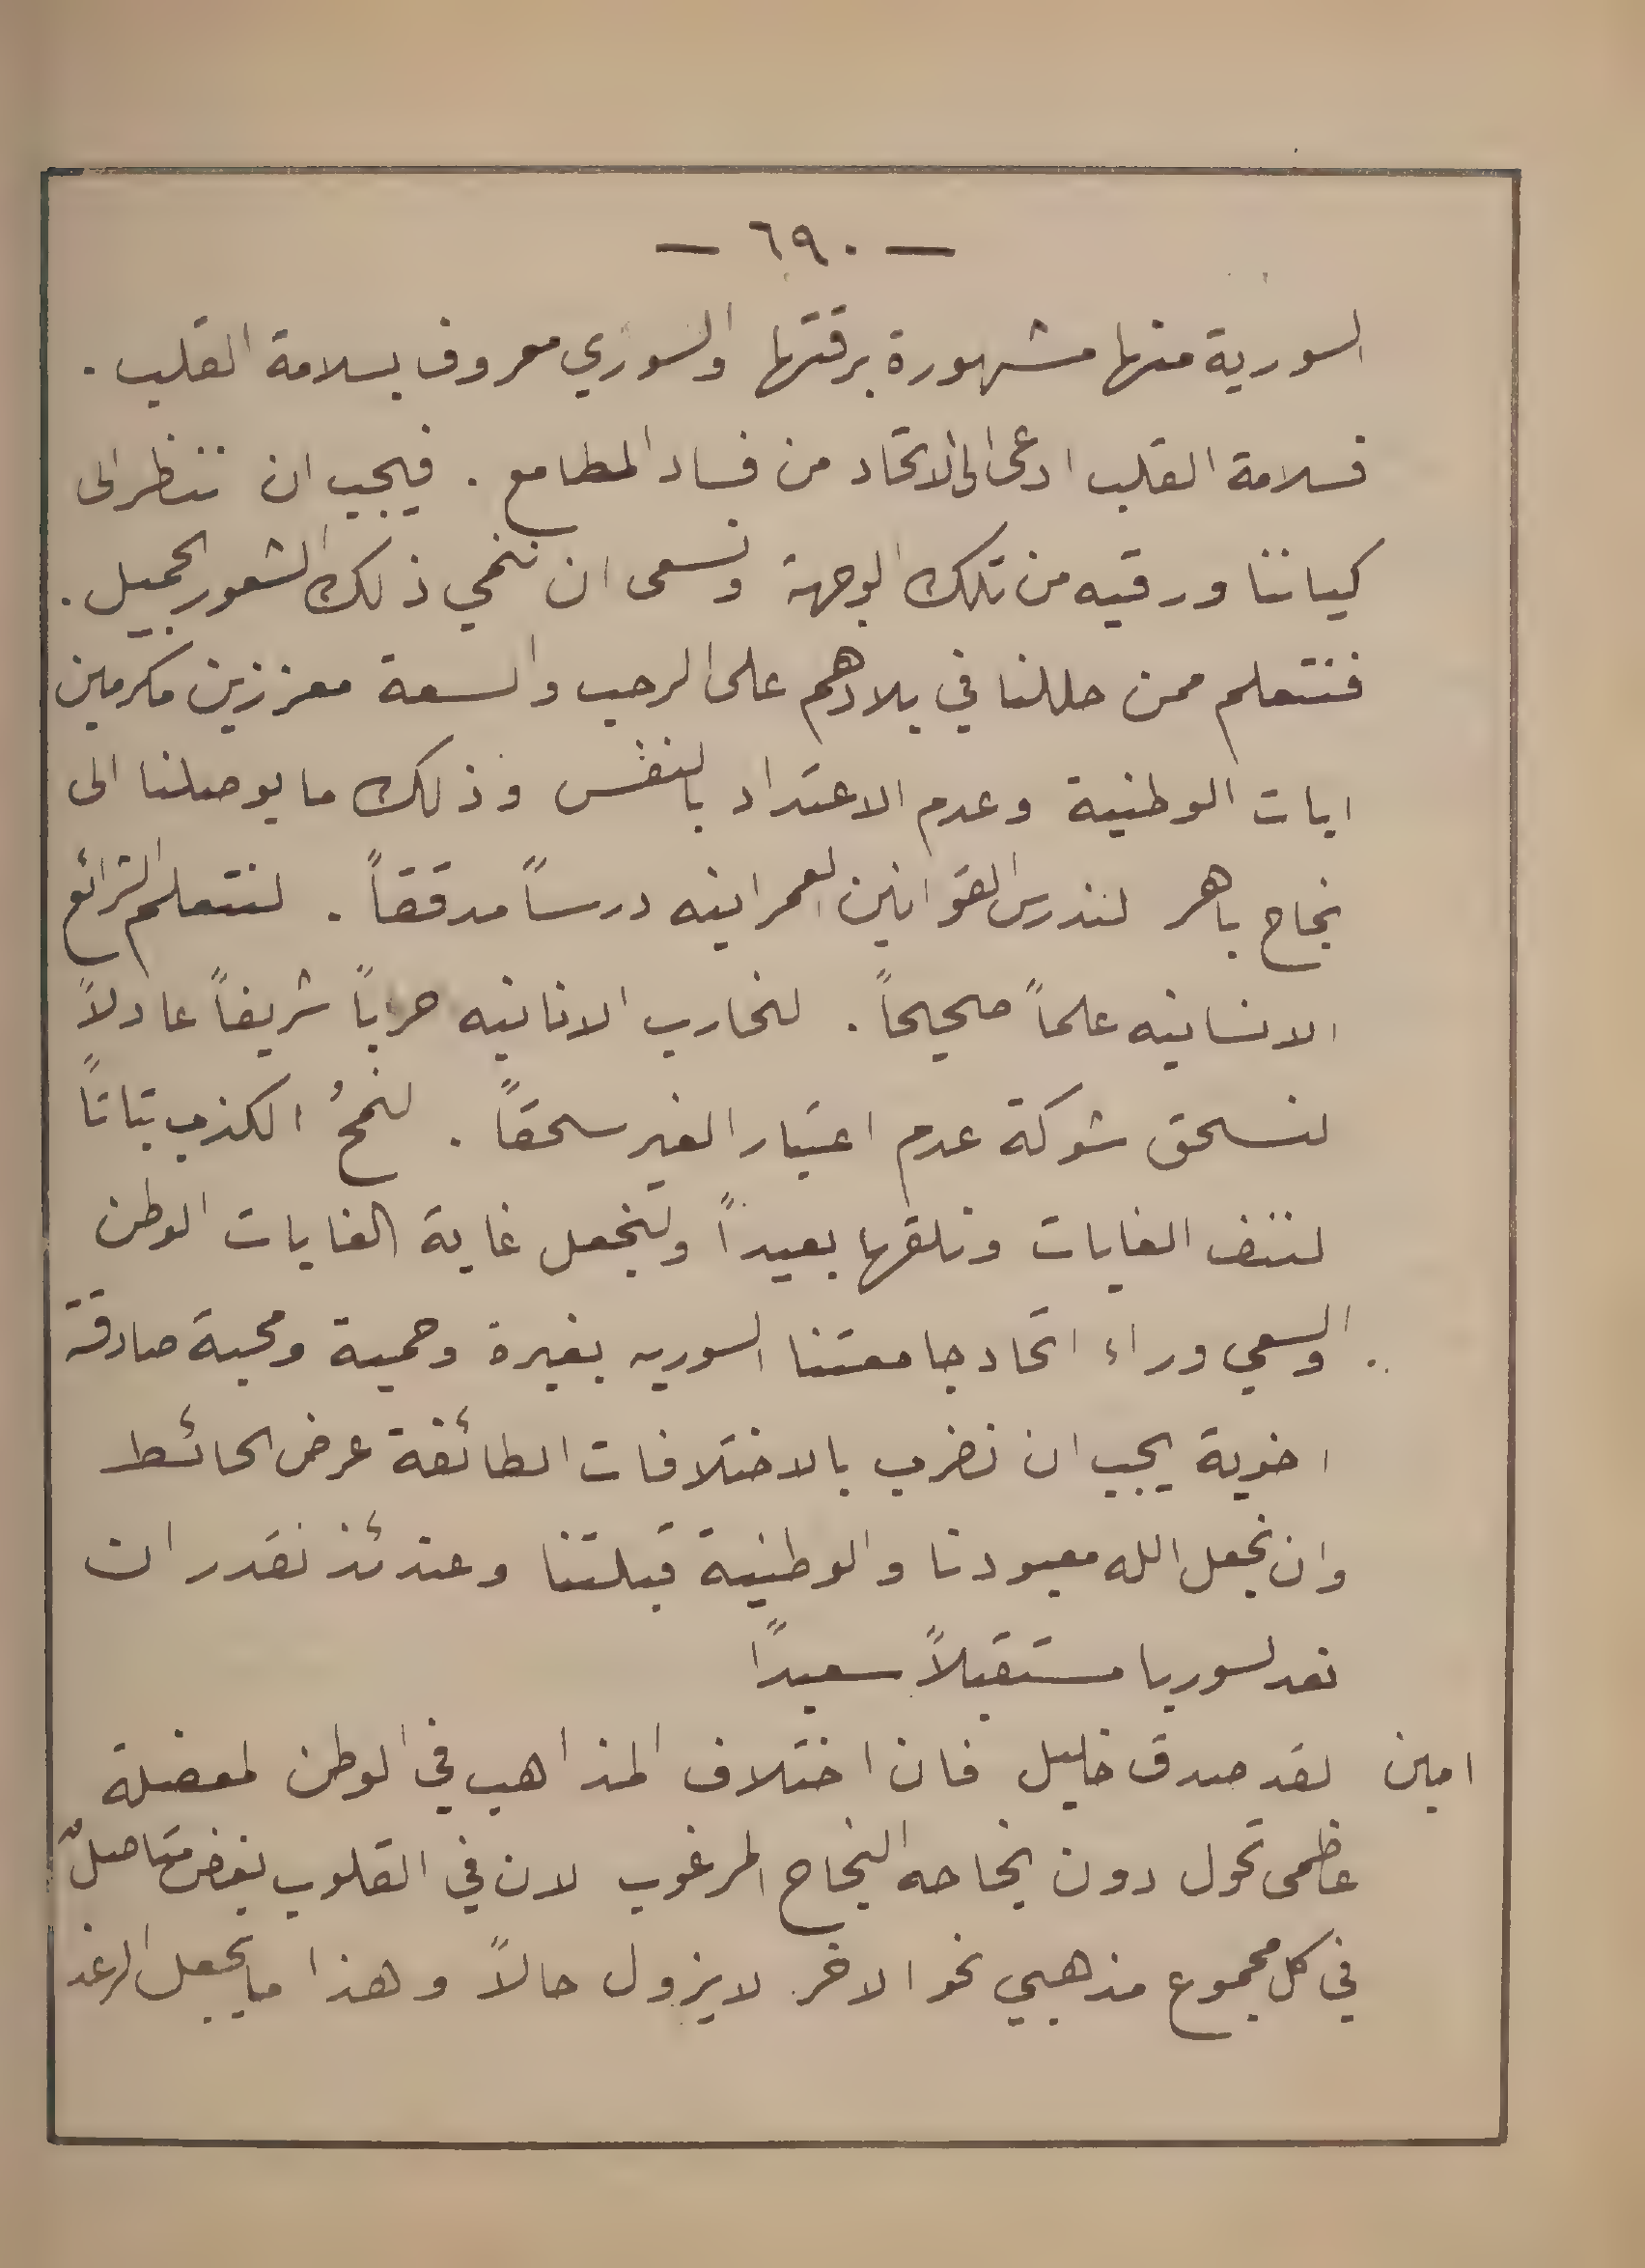 — ٦٩٠ —
السورية منها مشهورة برقتها والسوري معروف بسلامة القلب .
فسلامة القلب ادعى الى الاتحاد من فساد المطامع . فيجب ان ننظر الى
كياننا ورقيه من تلك الوجهة ونسعى ان ننمي ذلك الشعور الجميل .
فنتعلم ممن حللنا في بلادهم على الرحب والسعة معززين مكرمين
ايات الوطنية وعدم الاعتداد بالنفس وذلك ما يوصلنا الى
نجاح باهر لندرس القوانين العمرانيه درساً مدققاً . لنتعلم الشرائع
الانسانيه علماً صحيحاً . لنحارب الانانيه حرباً شريفاً عادلاً
لنسحق شوكة عدم اعتبار الغير سحقاً . لنمحُ الكذب بتاتاً
لننف الغايات ونلقها بعيداً ولنجعل غاية الغايات الوطن
والسعي وراء اتحاد جامعتنا السوريه بغيرة وحمية ومحبة صادقة
اخوية يجب ان نضرب بالاختلافات الطائفة عرض الحائط
وان نجعل الله معبودنا والوطنية قبلتنا وعندئذ نقدر ان
نعد لسوريا مستقبلاً سعيداً
امين لقد صدق خليل فان اختلاف المذاهب في الوطن لمعضلة
عظمى تحول دون نجاحه النجاح المرغوب لان في القلوب بغض متاصلٌ
في كل مجموع مذهبي نحو الاخر لا يزول حالاً وهذا ما يجعل الرغد